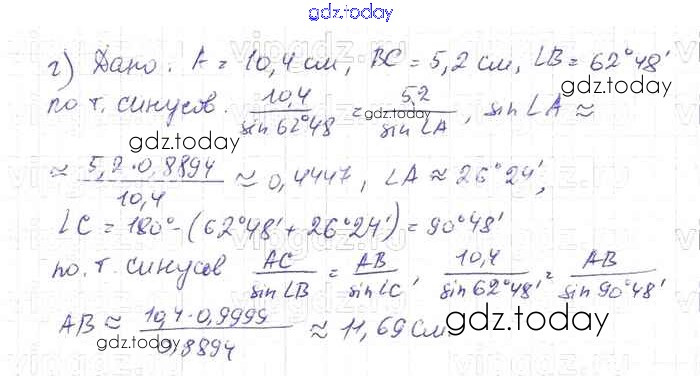 gdz.today
г) Дано: A = 10,4 см, BC = 5,2 см, ∠B = 62°48'
gdz.today
по т. синусов. 10,4/sin 62°48 = 5,2/sin ∠A, sin ∠A ≈
gdz.today
gdz.today
≈ 5,2·0,8894/10,4 ≈ 0,4447, ∠A ≈ 26°24',
gdz.today
∠C = 180° - (62°48' + 26°24') = 90°48'
по. т. синусов AC/sin∠B = AB/sin∠C, 10,4/sin 62°48' = AB/sin 90°48'
gdz.today
AB ≈ 10,4·0,9999/0,8894 ≈ 11,69 см.
gdz.today
gdz.today